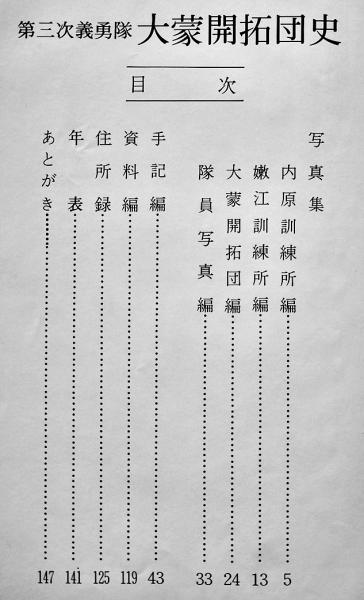 第三次義勇隊 大蒙開拓団史
目次
写真集
内原訓練所編 5
嫩江訓練所編 13
大蒙開拓団編 24
隊員写真編 33
手記編 43
資料編 119
住所録 125
年表 141
あとがき 147